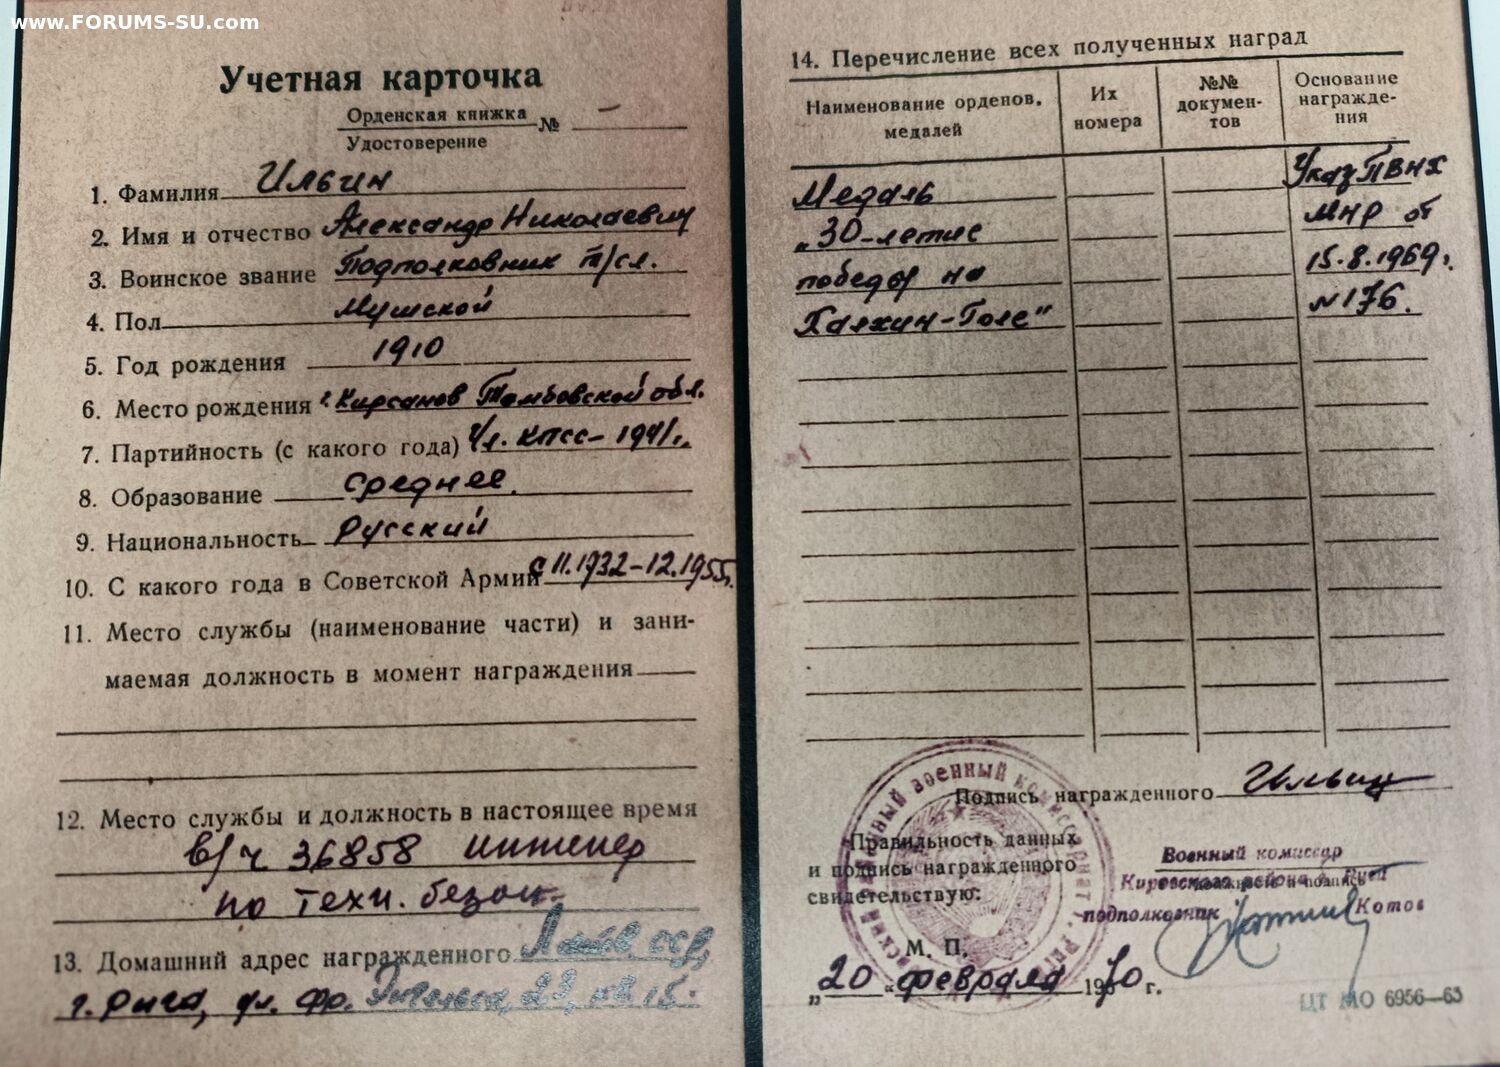 www.FORUMS-SU.com
Учетная карточка
Орденская книжка
Удостоверение
№ –
1. Фамилия Ильин
2. Имя и отчество Александр Николаевич
3. Воинское звание Подполковник т/сл.
4. Пол Мужской
5. Год рождения 1910
6. Место рождения г. Кирсанов Тамбовской обл.
7. Партийность (с какого года) Чл. КПСС – 1941 г.
8. Образование среднее.
9. Национальность русский
10. С какого года в Советской Армии с 11.1932–12.1955г.
11. Место службы (наименование части) и зани-
маемая должность в момент награждения
12. Место службы и должность в настоящее время
в/ч 36858 инженер
по техн. безоп.
13. Домашний адрес награжденного Латв. ССР,
г. Рига, ул. Фр. Энгельса, 23, кв. 15.
14. Перечисление всех полученных наград
Наименование орденов, медалей
Их номера
№№ докумен-
тов
Основание
награжде-
ния
Медаль Указ ПВНХ
„30-летие МНР от
победы на 15.8.1969г.
Халхин-Голе" №176.
Подпись награжденного Ильин
Правильность данных
и подпись награжденного
свидетельствую:
Военный комиссар
Кировского района г. Риги
подполковник Котов
М. П.
„20" февраля 1970 г.
ЦТ МО 6956—63